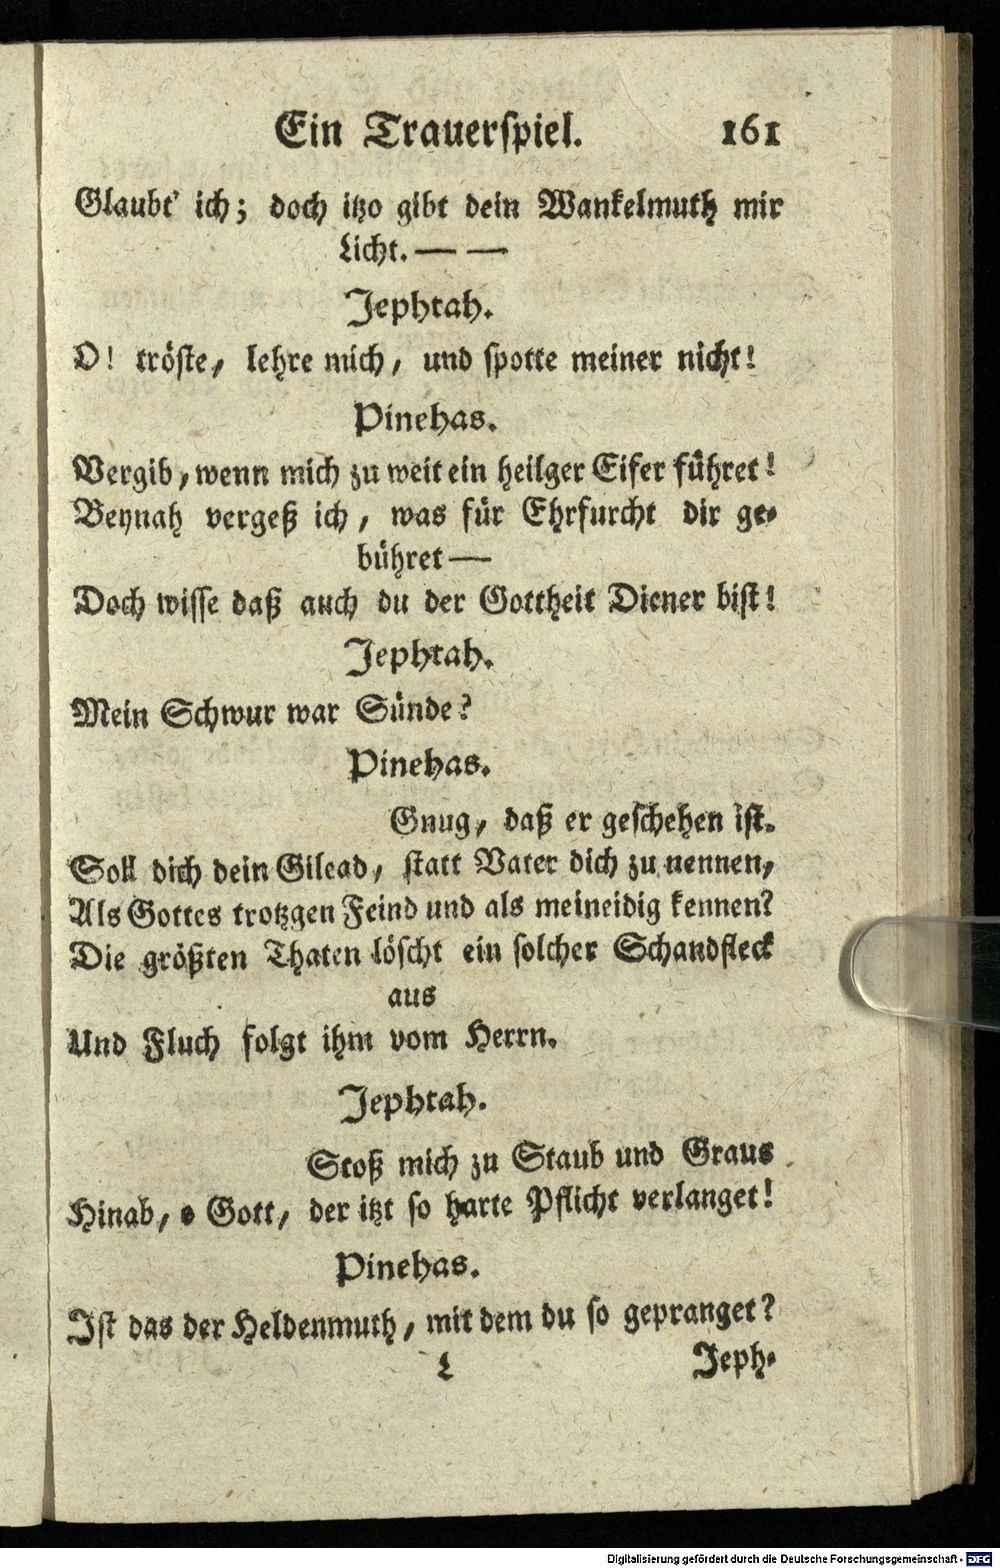 Ein Trauerſpiel. 161
Glaubt' ich; doch itzo gibt dein Wankelmuth mir
Licht. — —
Jephtah.
O! tröſte, lehre mich, und ſpotte meiner nicht!
Pinehas.
Vergib, wenn mich zu weit ein heilger Eifer führet!
Beynah vergeß ich, was für Ehrfurcht dir ge-
bühret —
Doch wiſſe daß auch du der Gottheit Diener biſt!
Jephtah.
Mein Schwur war Sünde?
Pinehas.
Gnug, daß er geſchehen iſt.
Soll dich dein Gilead, ſtatt Vater dich zu nennen,
Als Gottes trotzgen Feind und als meineidig kennen?
Die größten Thaten löſcht ein ſolcher Schandfleck
aus
Und Fluch folgt ihm vom Herrn.
Jephtah.
Stoß mich zu Staub und Graus
Hinab, o Gott, der itzt ſo harte Pflicht verlanget!
Pinehas.
Iſt das der Heldenmuth, mit dem du ſo gepranget?
L Jeph-
Digitalisierung gefördert durch die Deutsche Forschungsgemeinschaft - DFG